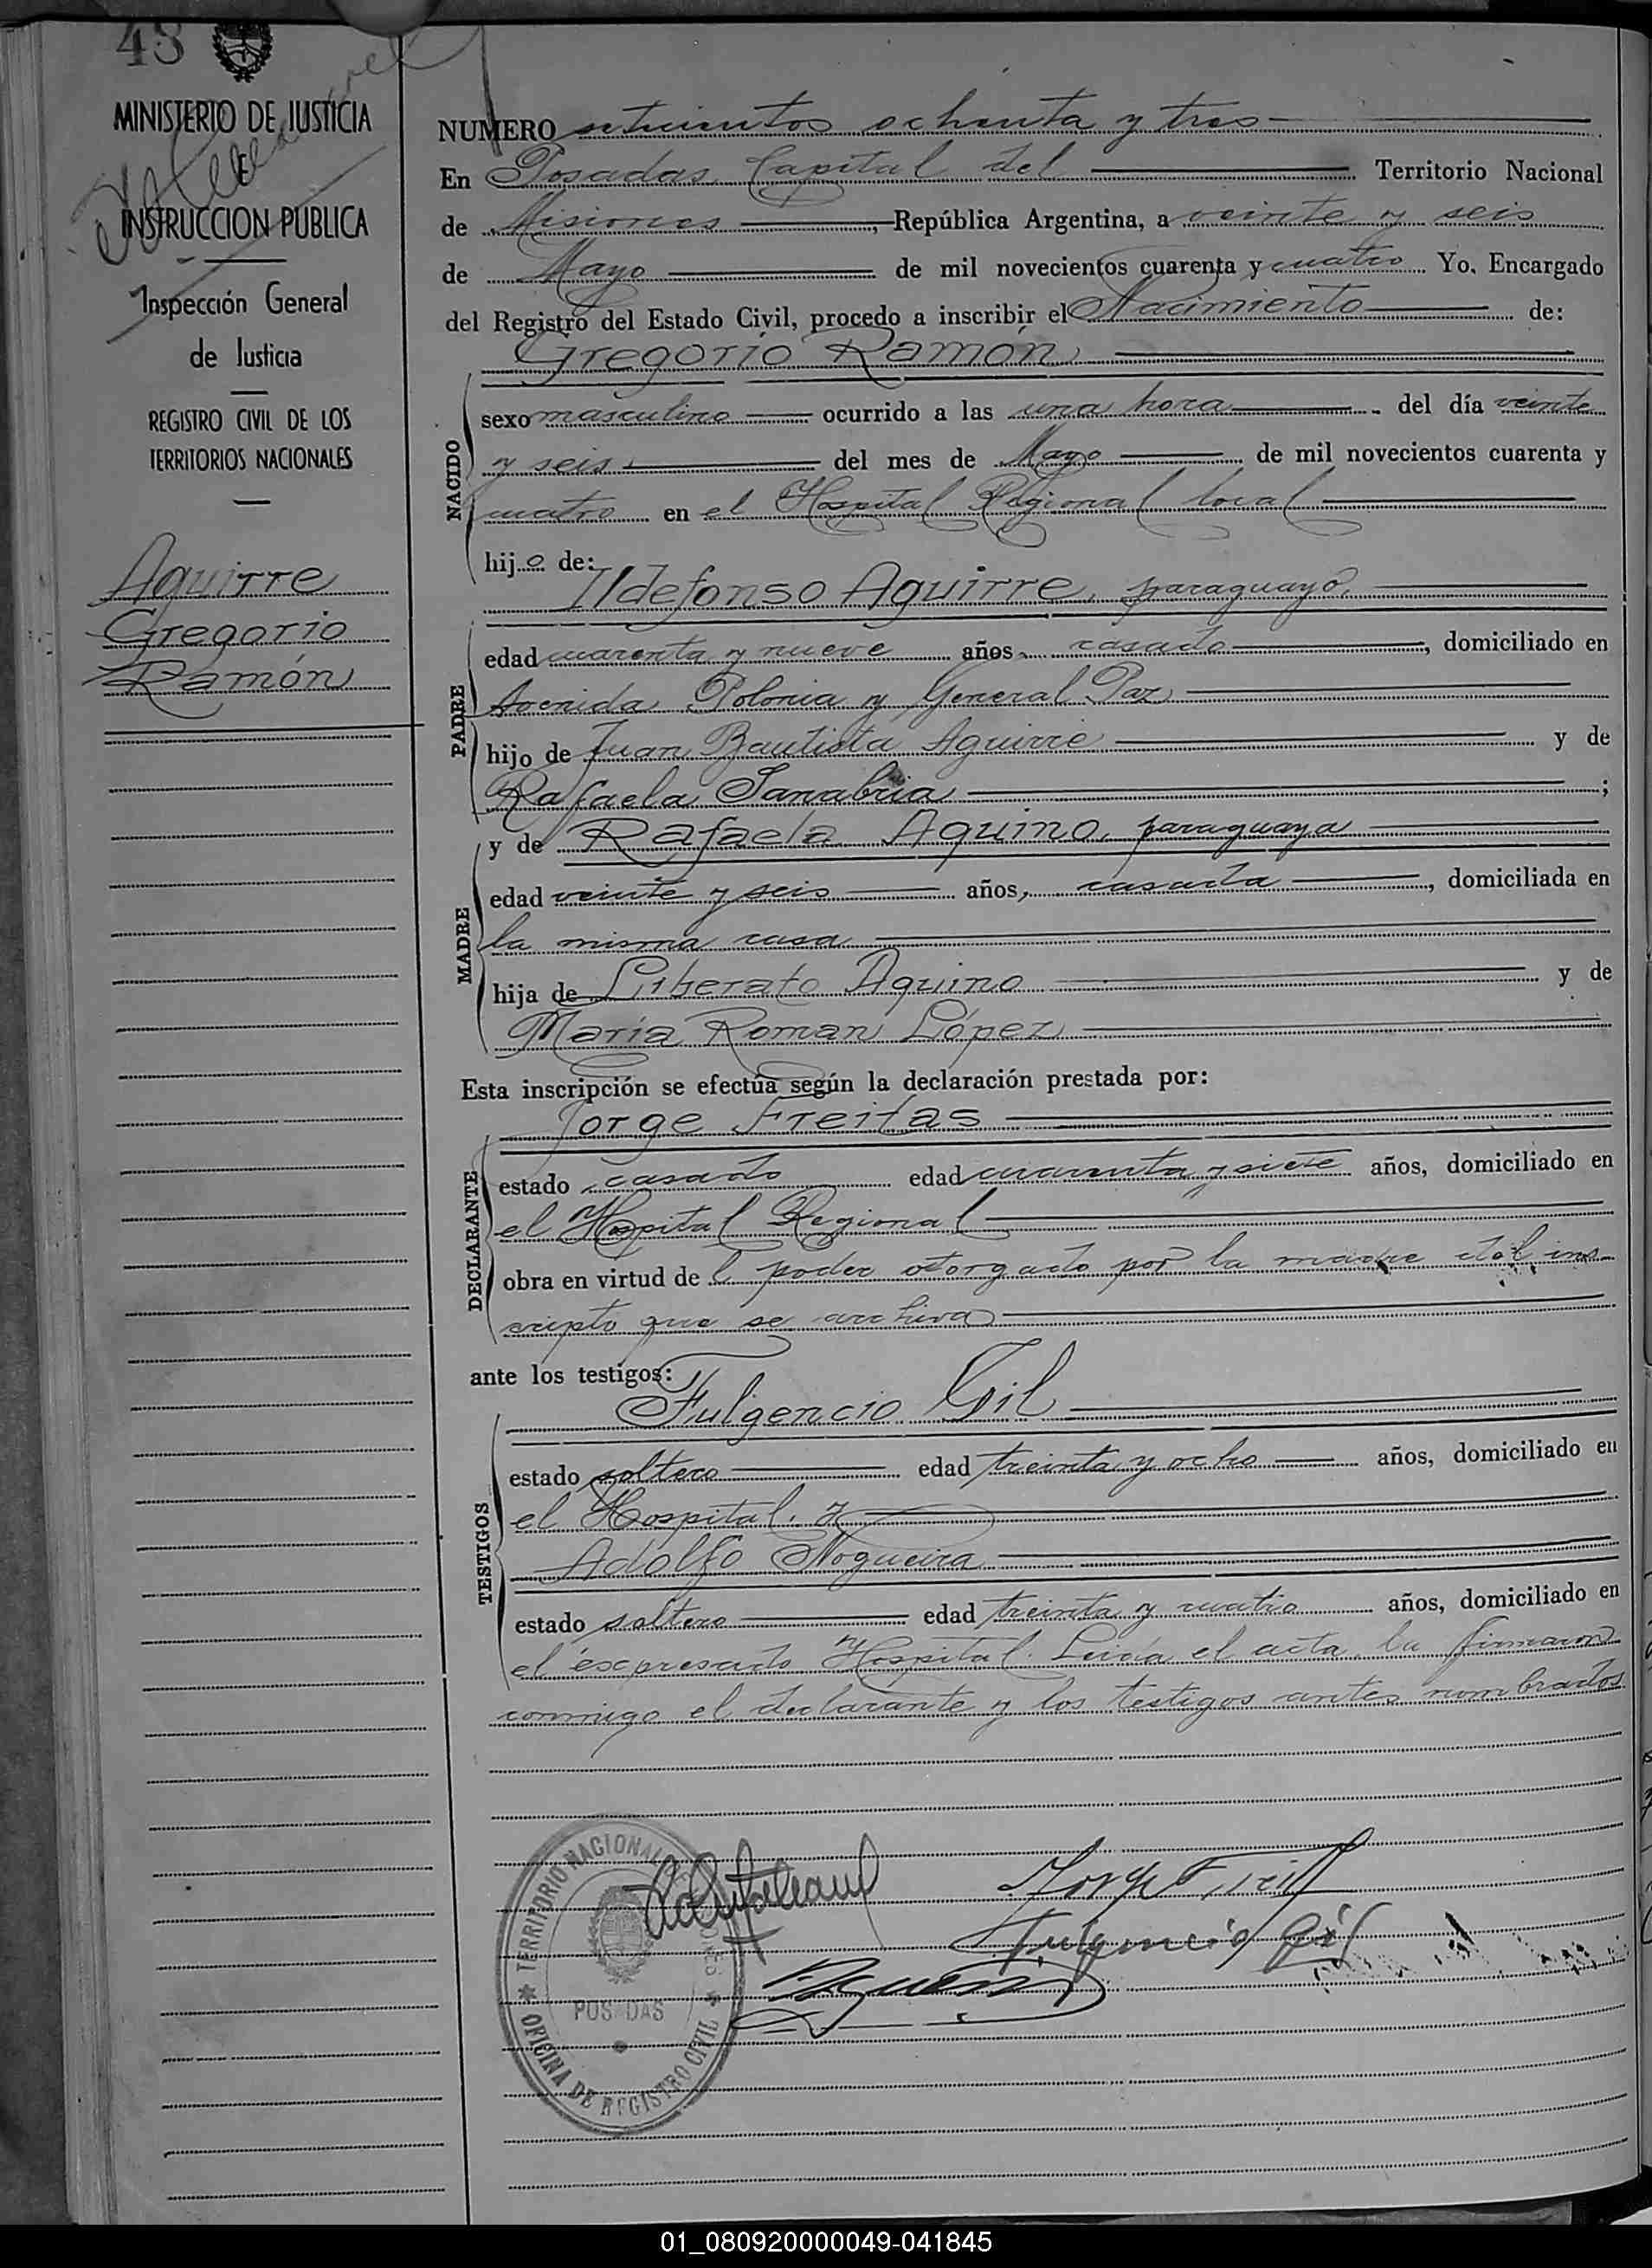 48
MINISTERIO DE JUSTICIA
E
INSTRUCCION PUBLICA
Inspección General
de Justicia
REGISTRO CIVIL DE LOS
TERRITORIOS NACIONALES
Aguirre
Gregorio
Ramón
NUMERO setecientos ochenta y tres
En Posadas Capital del Territorio Nacional
de Misiones, República Argentina, a veinte y seis
de Mayo de mil novecientos cuarenta y cuatro Yo, Encargado
del Registro del Estado Civil, procedo a inscribir el Nacimiento de:
Gregorio Ramón
NACIDO
sexo masculino ocurrido a las una hora del día veinte
y seis del mes de Mayo de mil novecientos cuarenta y
cuatro en el Hospital Regional local
hijo de:
Ildefonso Aguirre, paraguayo,
PADRE
edad cuarenta y nueve años, casado, domiciliado en
Avenida Polonia y General Paz
hijo de Juan Bautista Aguirre y de
Rafaela Sanabria;
y de Rafaela Aquino, paraguaya
MADRE
edad veinte y seis años, casada, domiciliada en
la misma casa
hija de Liberato Aquino y de
María Roman López
Esta inscripción se efectúa según la declaración prestada por:
Jorge Freitas
DECLARANTE
estado casado edad cuarenta y siete años, domiciliado en
el Hospital Regional
obra en virtud de l poder otorgado por la madre del ins-
cripto que se archiva
ante los testigos:
Fulgencio Gil
TESTIGOS
estado soltero edad treinta y ocho años, domiciliado en
el Hospital. y
Adolfo Nogueira
estado soltero edad treinta y cuatro años, domiciliado en
el expresado Hospital. Leída el acta, la firmaron
conmigo el declarante y los testigos antes nombrados
Jorge Freitas
Fulgencio Gil
TERRITORIO NACIONAL
POSADAS
OFICINA DE REGISTRO CIVIL
01_080920000049-041845